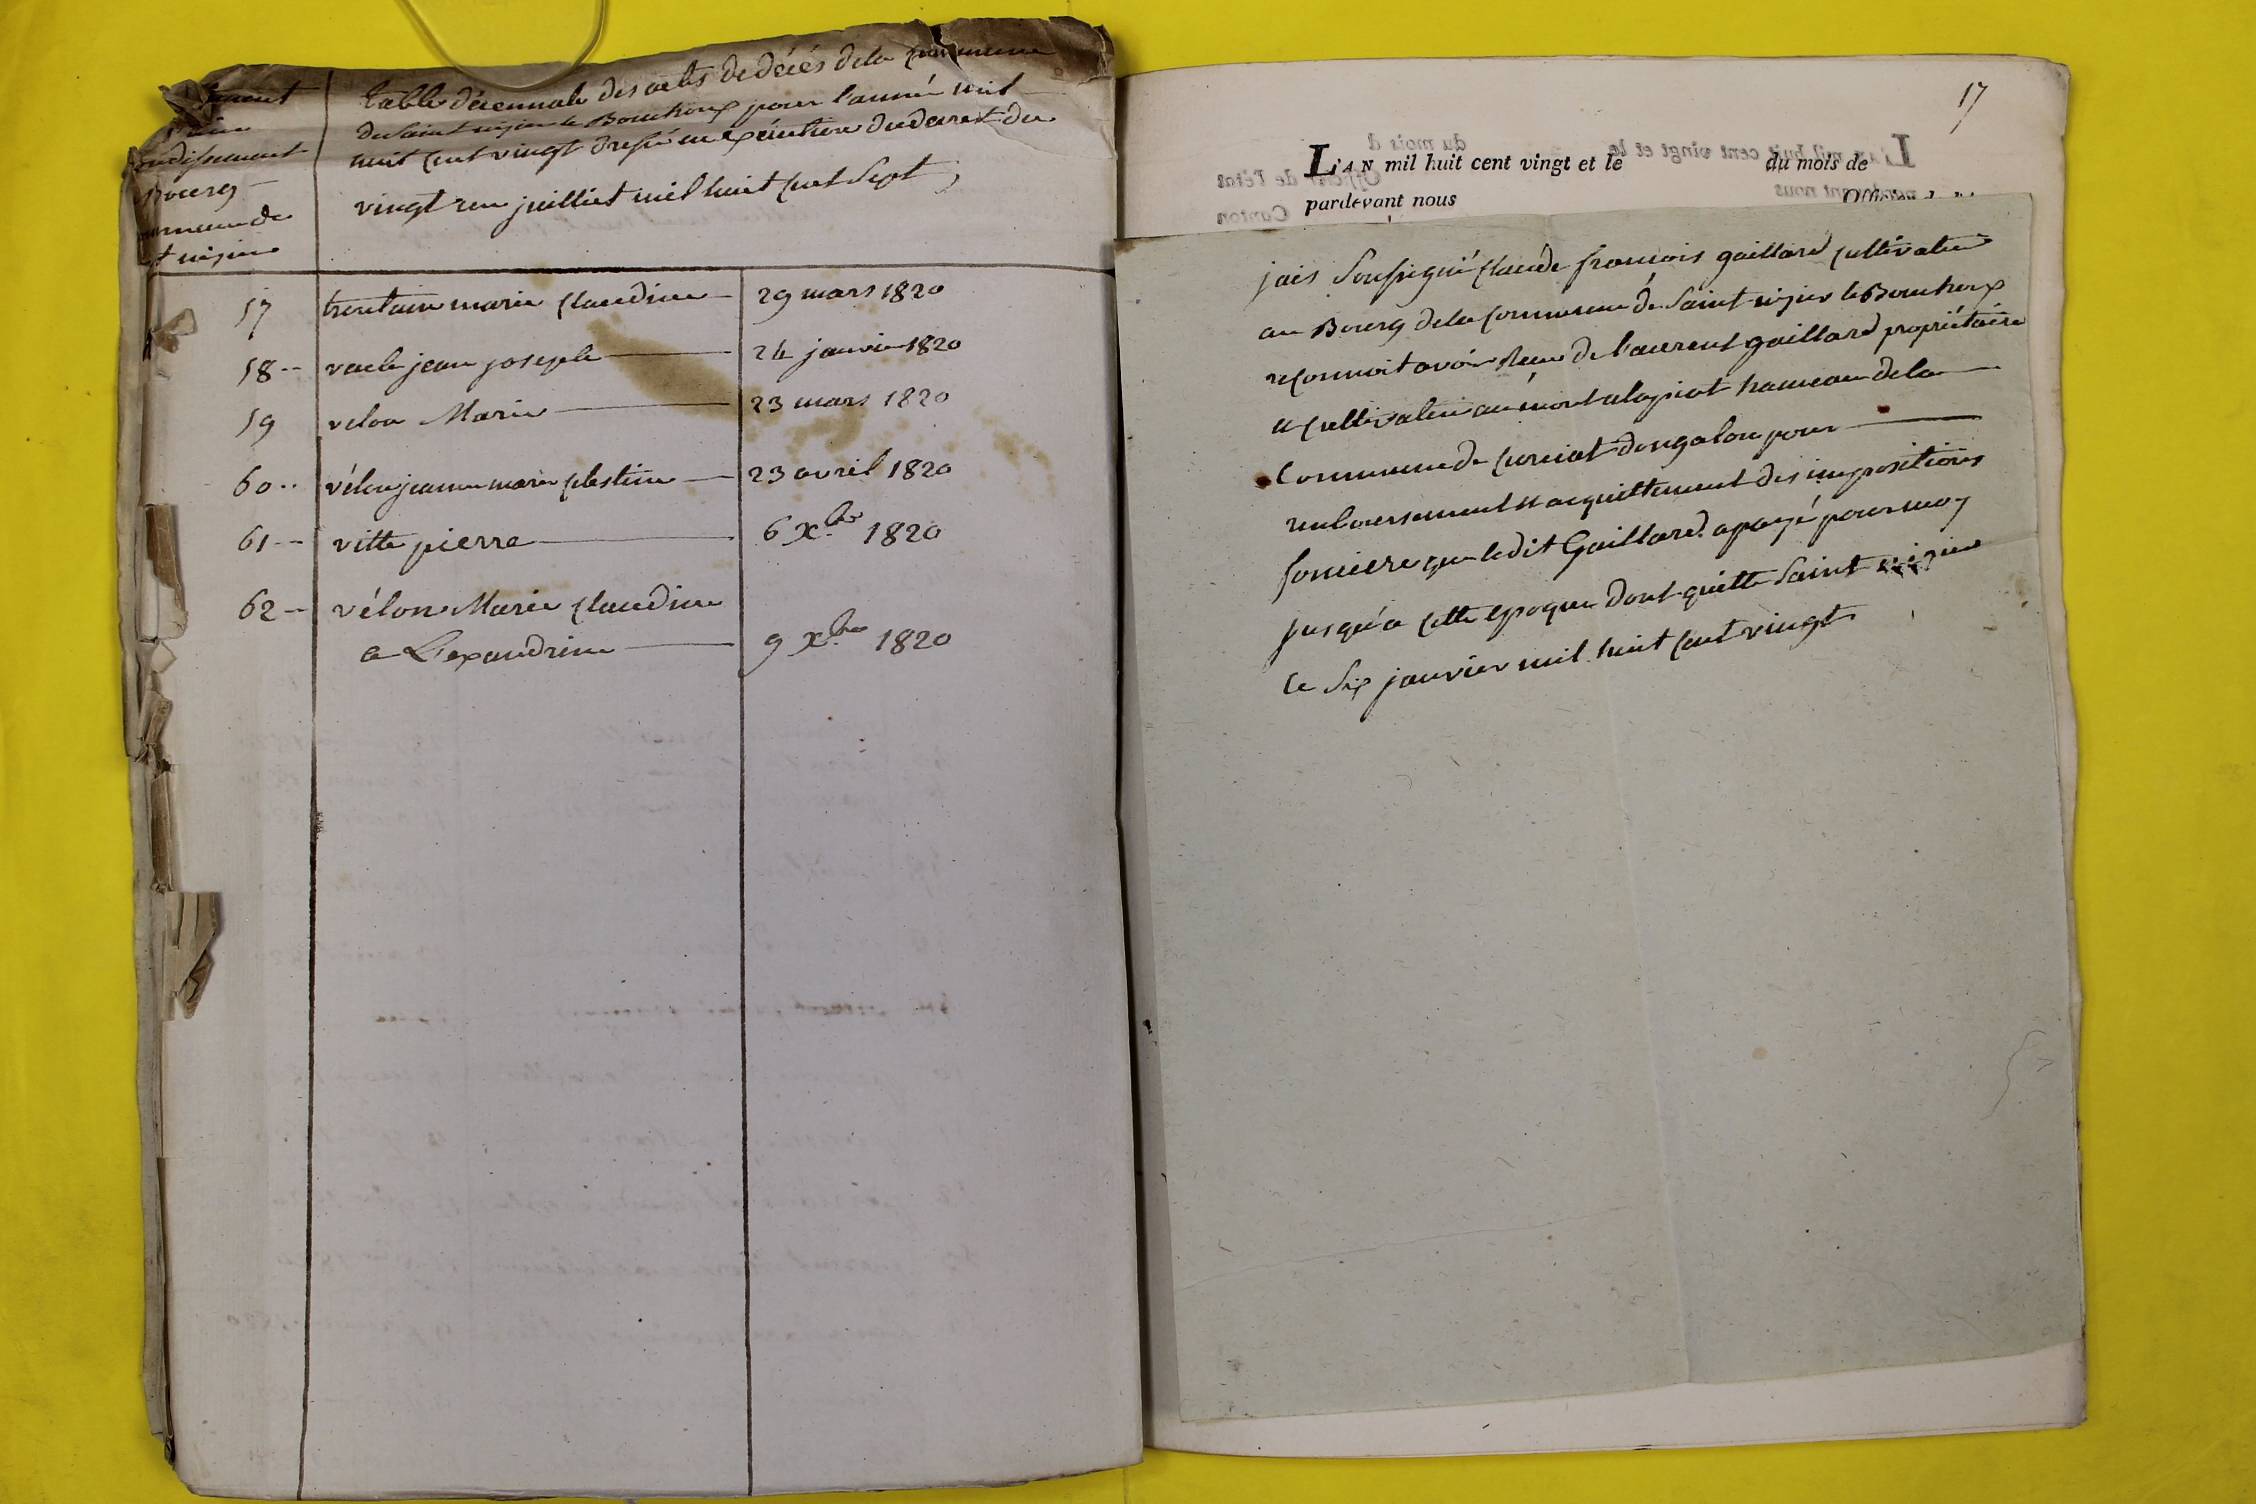 table décennale des actes de décès de la Commune
de saint nizier le Bouchoux pour l'année mil
huit cent vingt dressé en exécution du decret du
vingt un juilliet mil huit cent sept
Bourg
st nizier
57 trontain marie claudine 29 mars 1820
58 -- vacle jean joseph 24 janvier 1820
59 velon Marie 23 mars 1820
60 -- vélon jeanne marie célestine 23 avril 1820
61 -- ville pierre 6 Xbre 1820
62 -- vélon Marie claudine
a Lexandrine 9 Xbre 1820
17
L'AN mil huit cent vingt et le du mois de
pardevant nous
jais soussigné claude francois gaillard cultivateur
au Bourg de la commune de saint nizier le Bouchoux
reconnoit avoir Reçu de laurent gaillard propriétaire
et cultivateur au hameau de la
Commune de curciat dongalon pour
remboursement et acquittement des impositions
fonciere que ledit Gaillard a payé pour moy
jusqu'a cette epoque dont quitte saint nizier
ce six janvier mil huit cent vingt